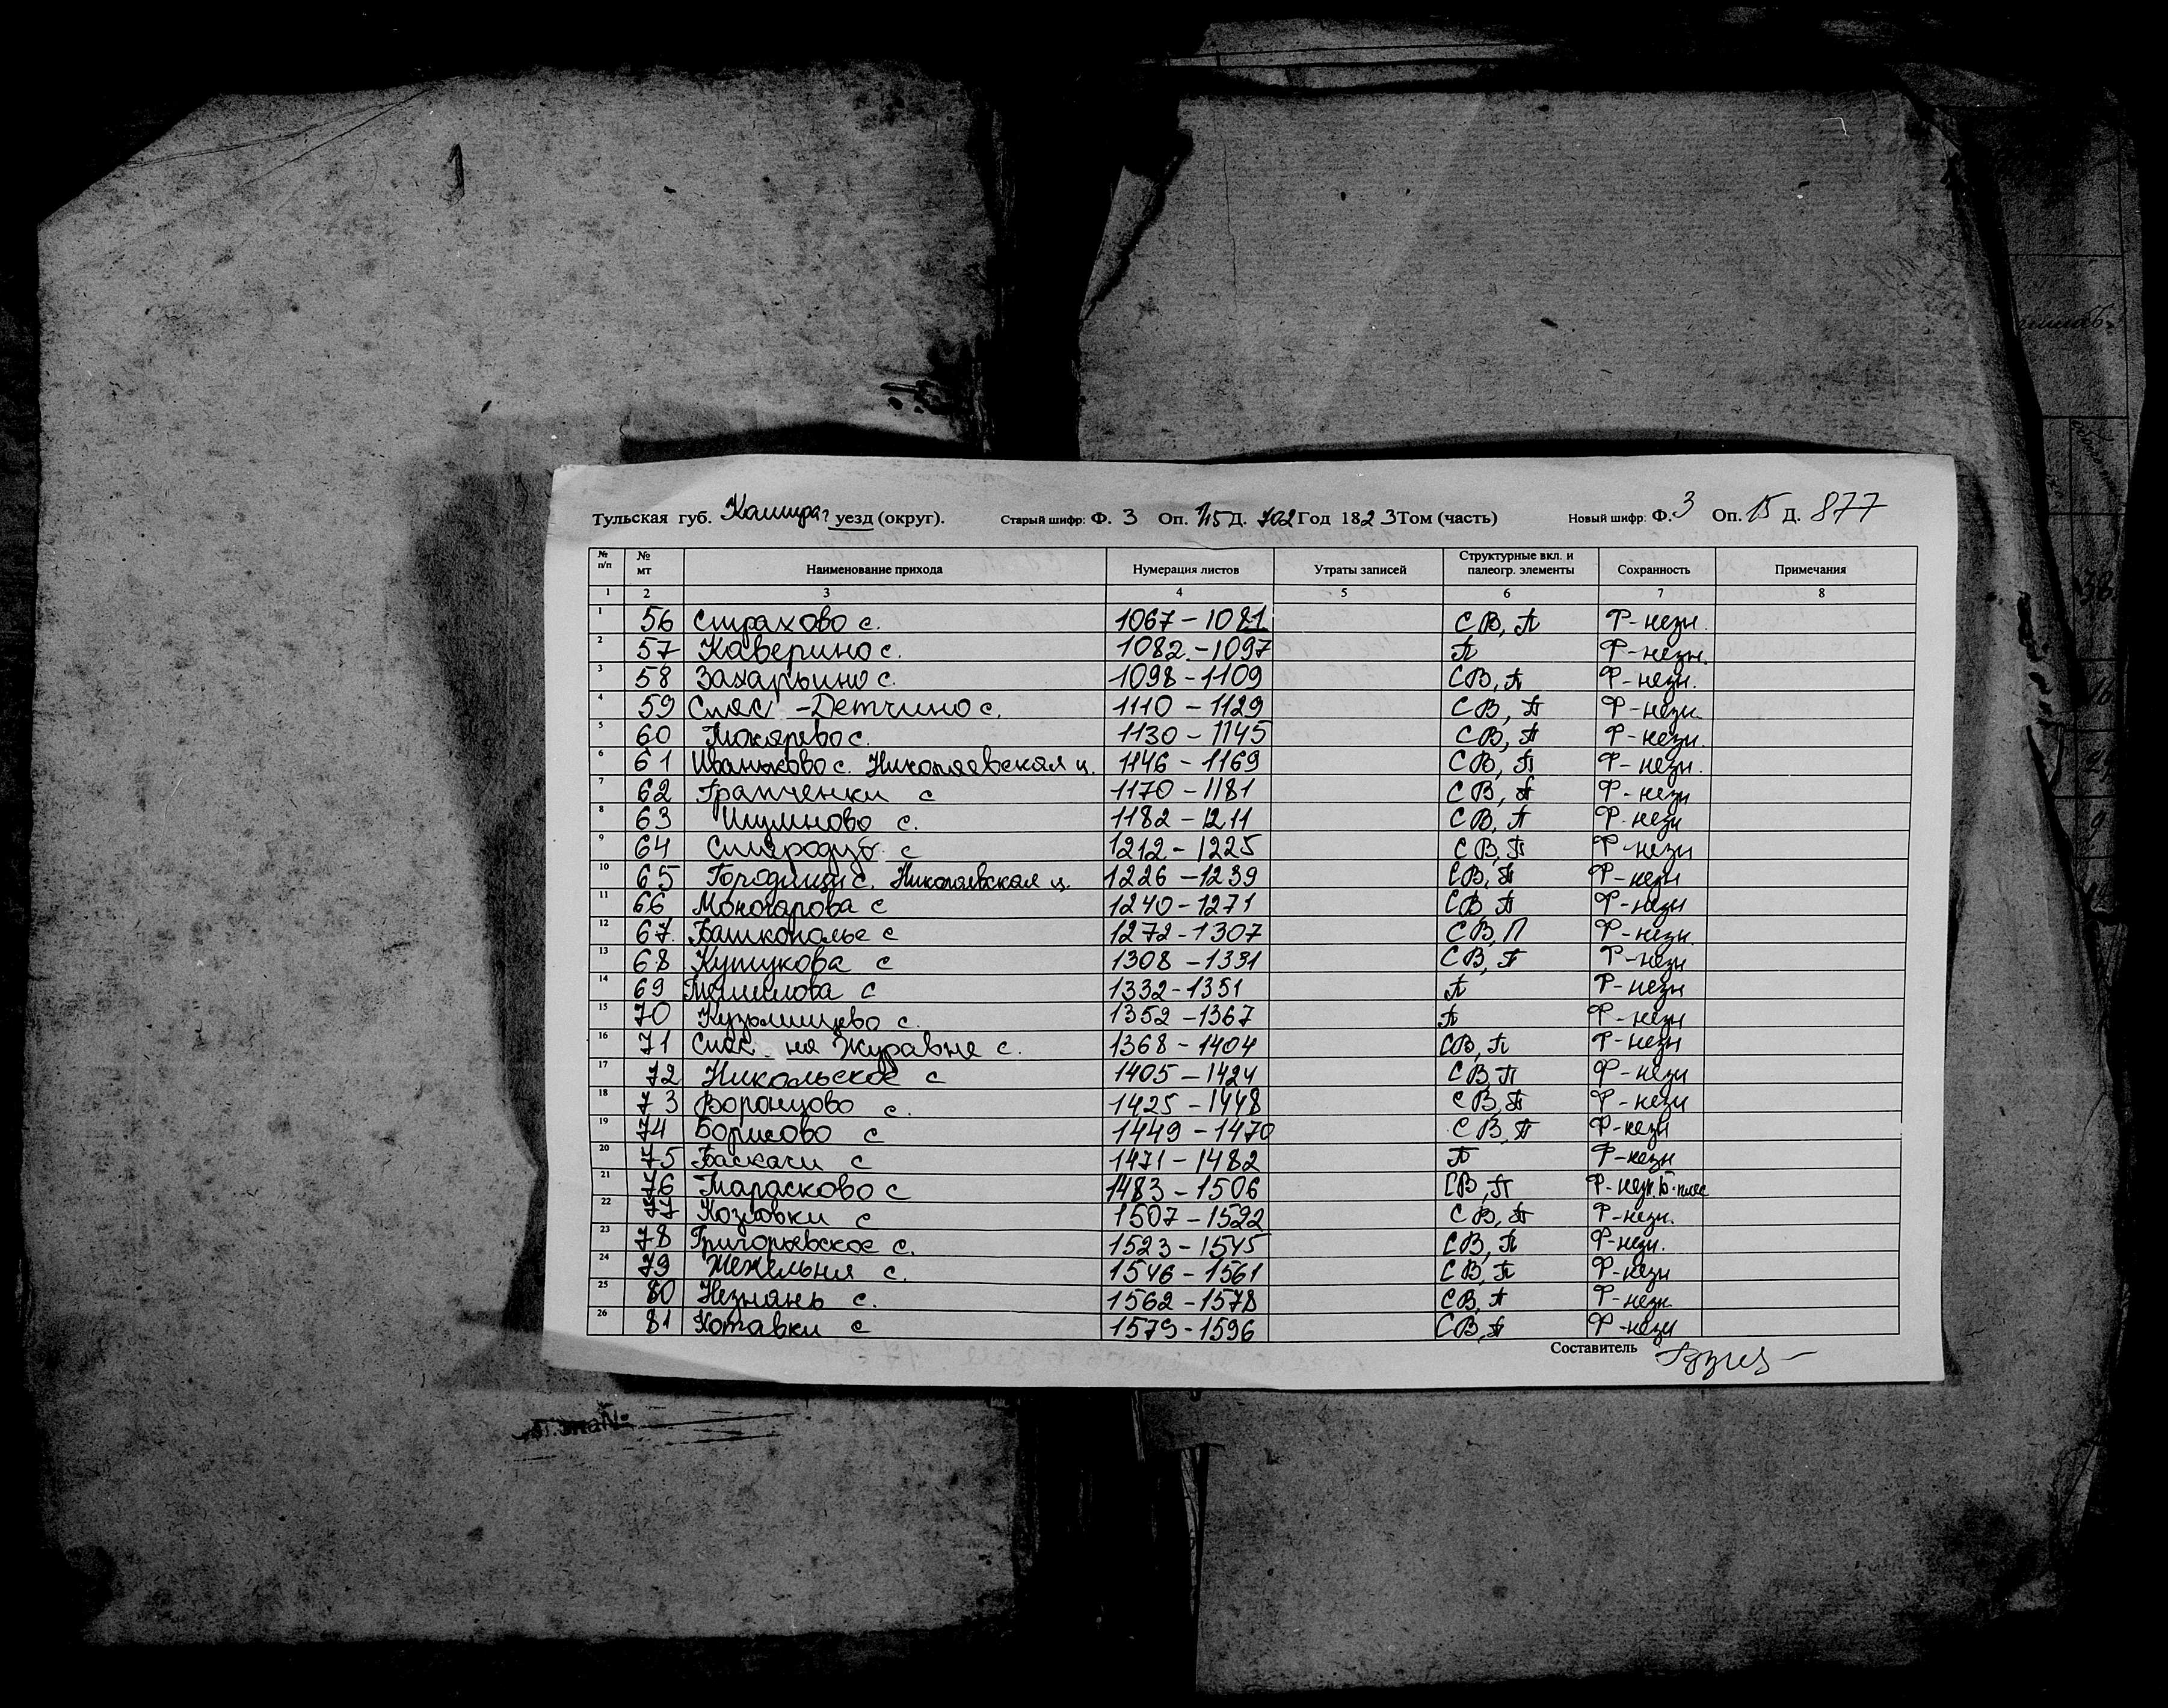 1
Тульская губ. Кашира г уезд (округ). Старый шифр: Ф. 3 Оп. Д. 702 Год 1823 Том (часть) Новый шифр: Ф. 3 Оп. 15 Д. 877
№ п/п № мт Наименование прихода Нумерация листов Утраты записей Структурные вкл. и палеогр. элементы Сохранность Примечания
1 2 3 4 5 6 7 8
1 56 Страхово с. 1067-1081 СВ, П Ф-незн.
2 57 Каверино с. 1082-1097 П Ф-незн.
3 58 Захарьино с. 1098-1109 СВ, П Ф-незн.
4 59 Спас-Детчино с. 1110-1129 СВ, П Ф-незн.
5 60 Токарево с. 1130-1145 СВ, П Ф-незн.
6 61 Иваньково с. Николаевская ц. 1146-1169 СВ, П Ф-незн.
7 62 Грапченки с 1170-1181 СВ, П Ф-незн
8 63 с. 1182-1211 СВ, П Ф-незн
9 64 Стародуб с 1212-1225 СВ, П Ф-незн
10 65 Городищи с. Николаевская ц. 1226-1239 СВ, П Ф-незн
11 66 Моногарова с 1240-1271 СВ, П Ф-незн
12 67. Башкополье с 1272-1307 СВ, П Ф-незн.
13 68 Кутукова с 1308-1331 СВ, П Ф-незн
14 69 Темилова с 1332-1351 П Ф-незн
15 70 Кузьмищево с. 1352-1367 П Ф-незн
16 71 Спас на Журавне с. 1368-1404 СВ, П Ф-незн
17 72 Никольское с 1405-1424 СВ, П Ф-незн
18 73 Воронцово с. 1425-1448 СВ, П Ф-незн
19 74 Борисово с 1449-1470 СВ, П Ф-незн
20 75 Баскачи с 1471-1482 П Ф-незн
21 76 Тарасково с 1483-1506 СВ, П Ф-незн.
22 77 Козловки с 1507-1522 СВ, П Ф-незн.
23 78 Григорьевское с. 1523-1545 СВ, П Ф-незн.
24 79 Жежельня с. 1546-1561 СВ, П Ф-незн
25 80 Незнань с. 1562-1578 СВ, П Ф-незн.
26 81 Хотавки с 1579-1596 СВ, П Ф-незн
Составитель